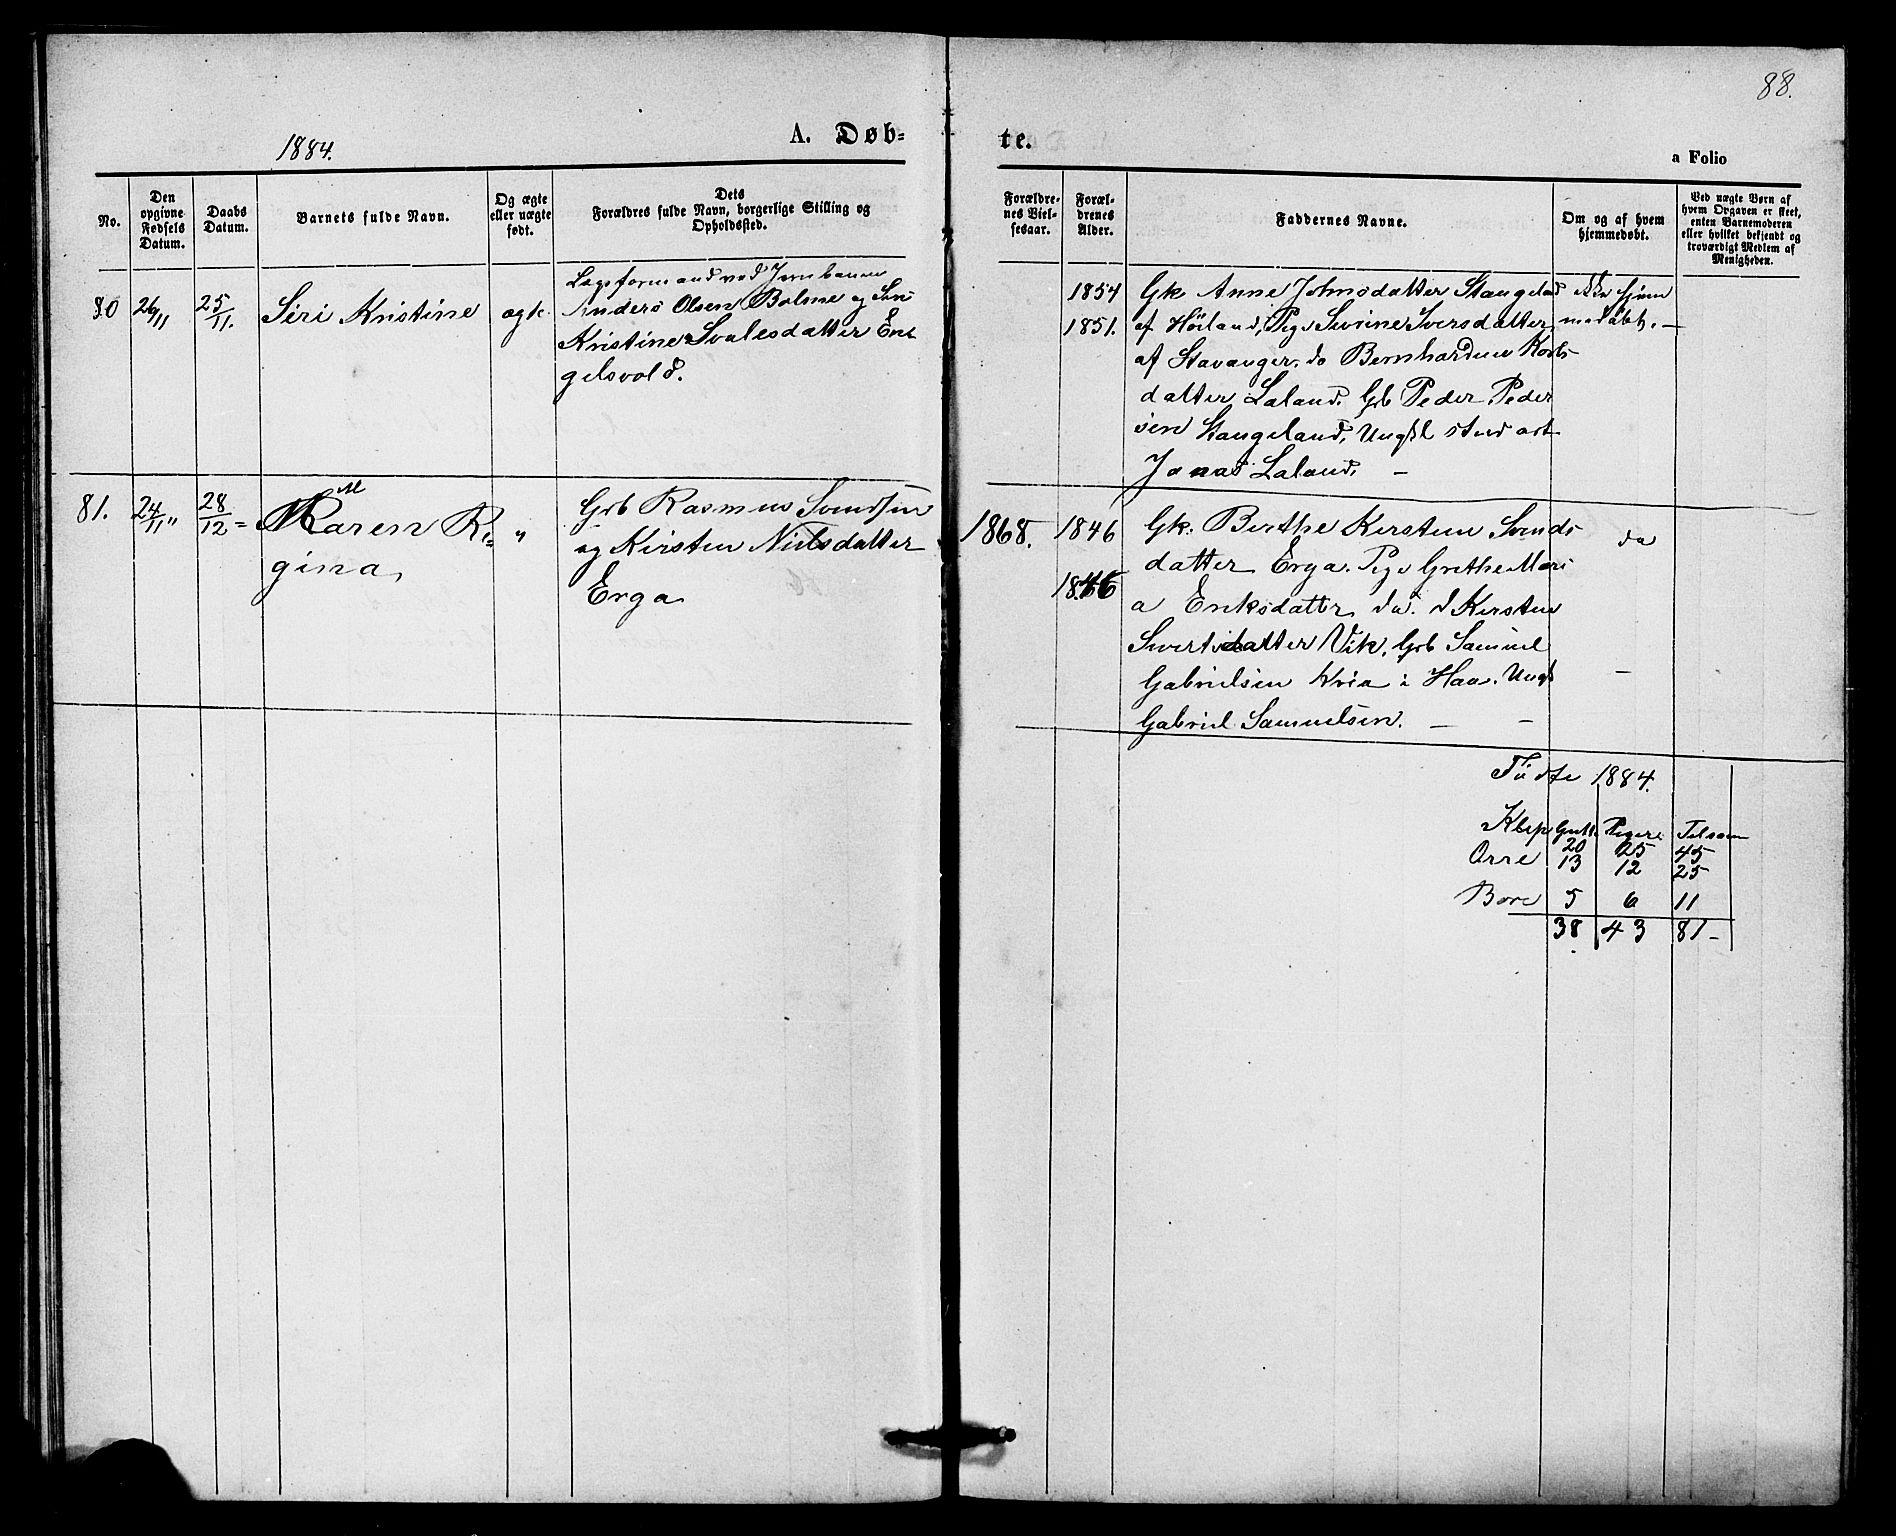 88.
1884.
A. Døb-
te.
a Folio
No.
Den
opgivne
Fødsels
Datum.
Daabs
Datum.
Barnets fulde Navn.
Og ægte
eller uægte
født.
Dets
Forældres fulde Navn, borgerlige Stilling og
Opholdssted.
Forældre-
nes Viel-
sesaar.
Foræl-
drenes
Alder.
Faddernes Navne.
Om og af hvem
hjemmedøbt.
Ved uægte Børn af
hvem Opgaven er skeet,
enten Barnemoderen
eller hvilket bekjendt og
troværdigt Medlem af
Menigheden.
80
26/11
25/11.
Siri Kristine
ægte.
Lagsformand ved Jernbanen
Anders Olsen Bolme og
Kristine Svalesdatter En
gelsvold.
1854
1851.
Gk Anne Johnsdatter Stangeland
af Høiland, Pige Sverine Iversdatter
af Stavanger. do Bernhardine
datter Laland. Gb Peder Peder
sen Stangeland, Ungkl stud art
Jonas Laland. –
ikke hjem
medøbt. –
81.
24/11 "
28/12 =
Maren Re=
gina
"
Grb Rasmus Svendsen
og Kirsten Nielsdatter
Erga
1868.
1846
1846
Gk. Berthe Kirstine Svends
datter Erga. Pige Grethe Mari
a Eriksdatter do. d Kirsten
Sivertsdatter Vik, Grb Samuel
Gabrielsen Kvia i Haa. Ungk
Gabriel Samuelsen. – –
do
–
Fødte 1884.
Klep Gutte Pigere Tilsam
20 25 45
Orre 13 12 25
Bore 5 6 11
38 43 81 –